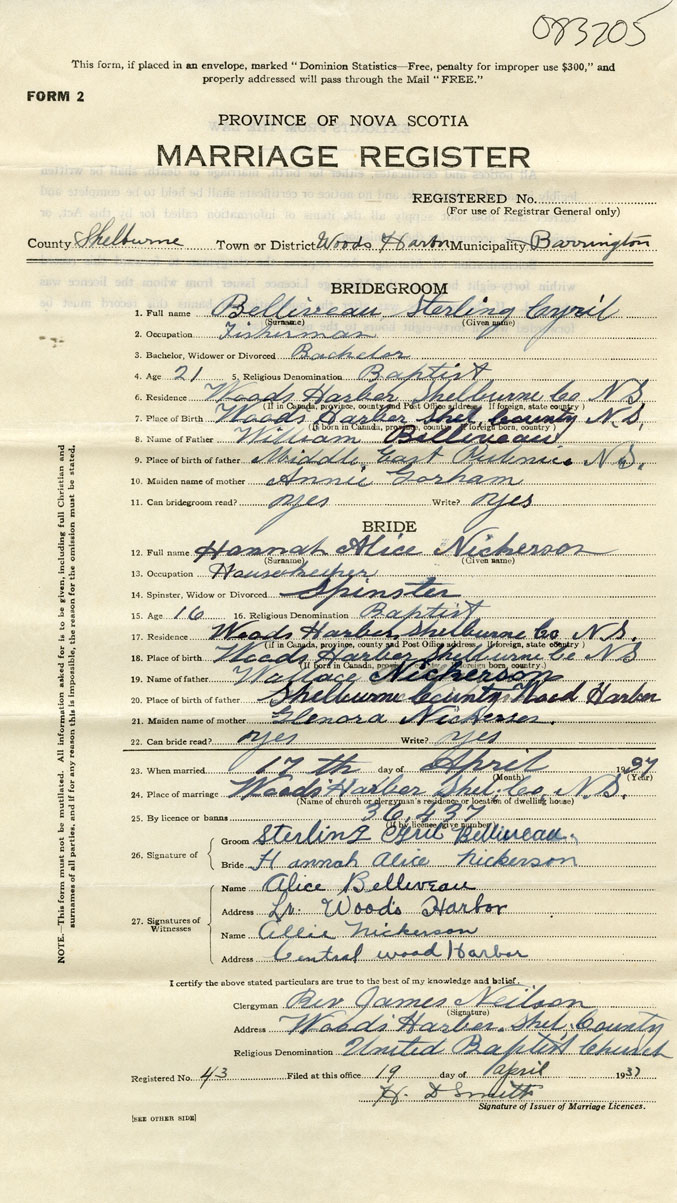 083205
This form, if placed in an envelope, marked "Dominion Statistics—Free, penalty for improper use $300," and
properly addressed will pass through the Mail "FREE."
FORM 2
PROVINCE OF NOVA SCOTIA
MARRIAGE REGISTER
REGISTERED No.
(For use of Registrar General only)
County Shelburne Town or District Woods Harbor Municipality Barrington
BRIDEGROOM
1. Full name Belliveau Sterling Cyril
(Surname) (Given name)
2. Occupation Fisherman
3. Bachelor, Widower or Divorced Bachelor
4. Age 21 5. Religious Denomination Baptist
6. Residence Woods Harbor Shelburne Co N.S.
(If in Canada, province, county and Post Office address. If foreign, state country)
7. Place of Birth Woods Harbor Shel County N.S.
(If born in Canada, province, county. If foreign born, country.)
8. Name of Father William Belliveau
9. Place of birth of father Middle East N.S.
10. Maiden name of mother Annie Gorham
11. Can bridegroom read? yes Write? yes
BRIDE
12. Full name Hannah Alice Nickerson
(Surname) (Given name)
13. Occupation Housekeeper
14. Spinster, Widow or Divorced Spinster
15. Age 16 16. Religious Denomination Baptist
17. Residence Woods Harbor Shelburne Co N.S.
(if in Canada, province, county and Post Office address. If foreign, state country)
18. Place of birth Woods Harbor Shelburne Co N S
(If born in Canada, province, county. If foreign born, country.)
19. Name of father Wallace Nickerson
20. Place of birth of father Shelburne County Wood Harbor
21. Maiden name of mother Glenora Nickerson.
22. Can bride read? yes Write? yes
23. When married 17 th day of April 1937
(Month) (Year)
24. Place of marriage Woods Harbor Shel. Co. N.S.
(Name of church or clergyman's residence or location of dwelling house)
25. By licence or banns 36,437
(If by licence give number)
26. Signature of
Groom Sterling Cyril Belliveau.
Bride Hannah Alice Nickerson
27. Signatures of Witnesses
Name Alice Belliveau
Address Lr. Woods Harbor
Name Nickerson
Address Central wood Harbor
I certify the above stated particulars are true to the best of my knowledge and belief.
Clergyman Rev James Neilson
(Signature)
Address Woods Harbor. Shel. County
Religious Denomination United Baptist Church
Registered No. 43 Filed at this office 19 day of April 1937
H. D Smith
Signature of Issuer of Marriage Licences.
[SEE OTHER SIDE]
NOTE.—This form must not be mutilated. All information asked for is to be given, including full Christian and
surnames of all parties, and if for any reason this is impossible, the reason for the omission must be stated.